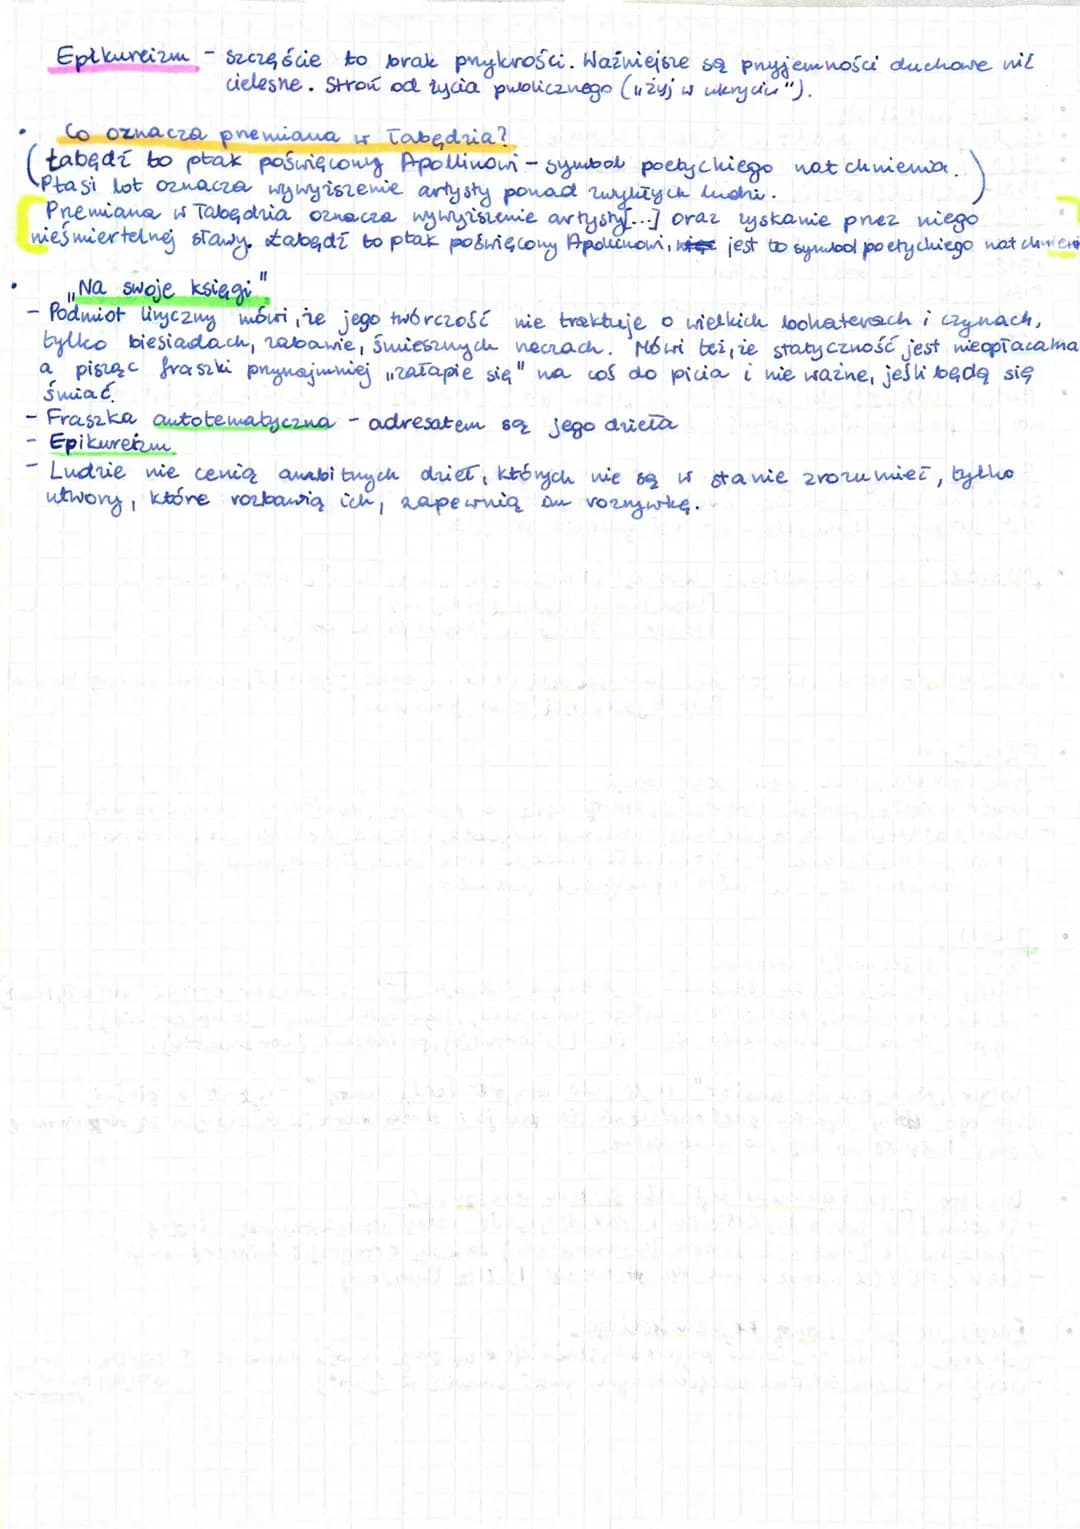 Epikureizm - szczęście to brak przykrości. Ważniejsze są przyjemności duchowe niż
cielesne. Stroń od życia publicznego („żyj w ukryciu").
• Co oznacza przemiana w łabędzia?
(Łabędź to ptak poświęcony Apollinowi - symbol poetyckiego natchnienia.
Ptasi lot oznacza wywyższenie artysty ponad zwykłych ludzi.)
[Przemiana w łabędzia oznacza wywyższenie artysty [...] oraz zyskanie przez niego
nieśmiertelnej sławy. Łabędź to ptak poświęcony Apollinowi, jest to symbol poetyckiego natchnieni
• „Na swoje księgi"
- Podmiot liryczny mówi, że jego twórczość nie traktuje o wielkich bohaterach i czynach,
tylko biesiadach, zabawie, śmiesznych rzeczach. Mówi też, że statyczność jest nieopłacalna
a pisząc fraszki przynajmniej „załapie się" na coś do picia i nie ważne, jeśli będą się
śmiać.
- Fraszka autotematyczna - adresatem są jego dzieła
- Epikureizm.
- Ludzie nie cenią ambitnych dzieł, których nie są w stanie zrozumieć, tylko
utwory, które rozbawią ich, zapewnią im rozrywkę.